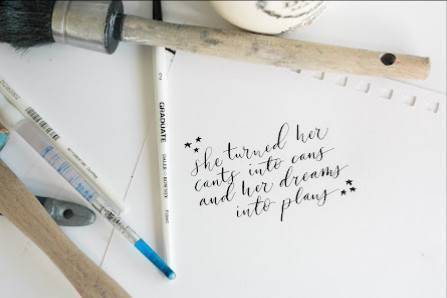 she turned her
cants into cans
and her dreams
into plans
2
GRADUATE